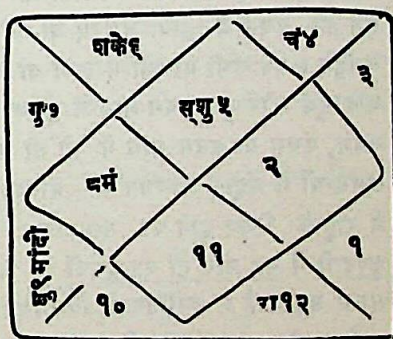 शके६ चं४
३
गु७ स्शु५
८मं २
बु९मांदी
११ १
१० रा१२